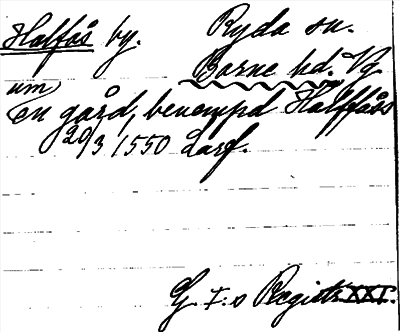 Halfås by. Ryda sn.
Barne hd. Vg
um
En gård, benempd Halffååss
20/3 1550 Larf.
G. I:s Registr. XXI.